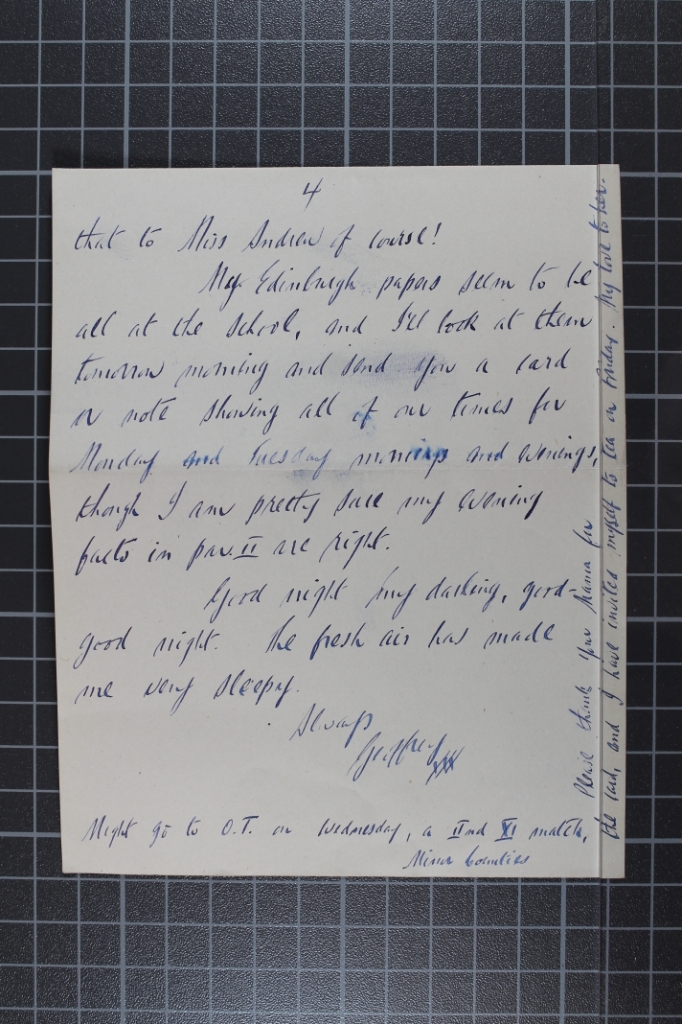 4
that to Miss Andrew of course!
My Edinburgh papers seem to be
all at the school, and I'll look at them
tomorrow morning and send you a card
or note showing all of our times for
Monday and Tuesday mornings and evenings,
though I am pretty sure my evening
facts in par. II are right.
Good night my darling, good-
good night. The fresh air has made
me very sleepy.
Always
Geoffrey xxx
Might go to O.T. on Wednesday, a IInd XI match,
Minor Counties
Please thank your Mama for
the card, and I have invited myself to tea on Friday. My love to her.